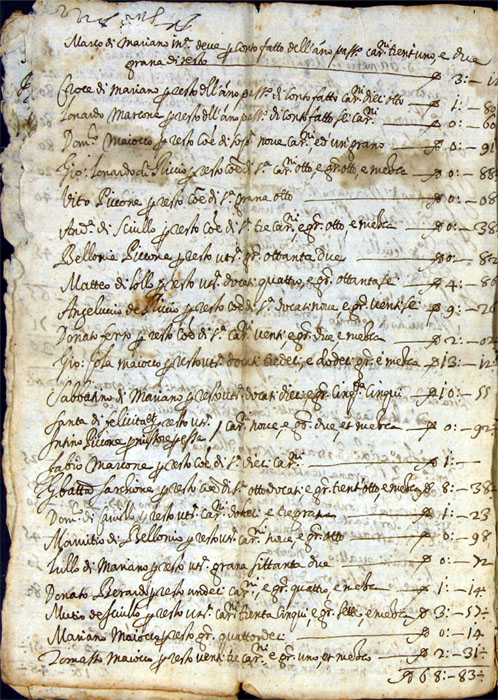 Marco di Mariano deve p conto fatto dell'ano pass.to car.ni trent'uno e due
grana di resto — 3:—
Croce di Mariano p resto dell'ano pass.to di conto fatto car.ni dieci otto — 1:—
Lonardo Marcone p resto dell'ano pass.to di conto fatto sei car.ni — 0:—60
Dom.co Maiocco p resto Coe di sop.a nove car.ni ed un grano — 0:—91
Gio: Lonardo p resto Coe di s.a car.ni otto, e gr. otto, e mebca — 0:—88
Vito Piccone p resto Coe di s.a grana otto — 0:—08
And.a di Sciullo p resto Coe di s.a tre car.ni, e gr. otto, e mebca — 0:—38
Bellonia Piccone p resto ut s.a gr. ottanta due — 0:—82
Matteo di Lollo p resto ut s.a docati quattro, e gr. ottanta sei — 4:—86
Angeluccio p resto Coe di s.a docati nove, e gr. venti sei — 9:—26
Donato p resto Coe di s.a car.ni venti e gr. due, e mebca — 2:—02
Gio: Maiocco p resto ut s.a docati tredici, e dodeci gr. e mebca — 13:—12
Sabbatino di Mariano p resto ut s.a docati dieci, e gr. cinq.ta cinqui — 10:—55
Santa di felicita et p resto ut s.a car.ni nove, e gr. due, et mebca — 0:—92
Antino Piccone
fabio Marcone p resto Coe di s.a dieci car.ni — 1:—
Gbatta p resto Coe di s.a otto docati, e gr. trent'otto, e mebca 8:—38
Dom.co di p resto ut s.a car.ni dodeci, e tre grana — 1:—23
di Bellonio p resto ut s.a car.ni nove, e gr. otto — 0:—98
Lullo di Mariano p resto ut s.a grana sittanta due — 0:—72
Donato Berardo p resto undeci car.ni, e gr. quattro, e mebca — 1:—14
Mutio de Sciullo p resto ut s.a car.ni trenta cinqui, e gr. sette, e mebca — 3:—57
Mariano Maiocco p resto gr. quattordeci — 0:—14
Tomasso Maiocco p resto venti tre car.ni, e gr. uno, et mebco — 2:—31
68:—83